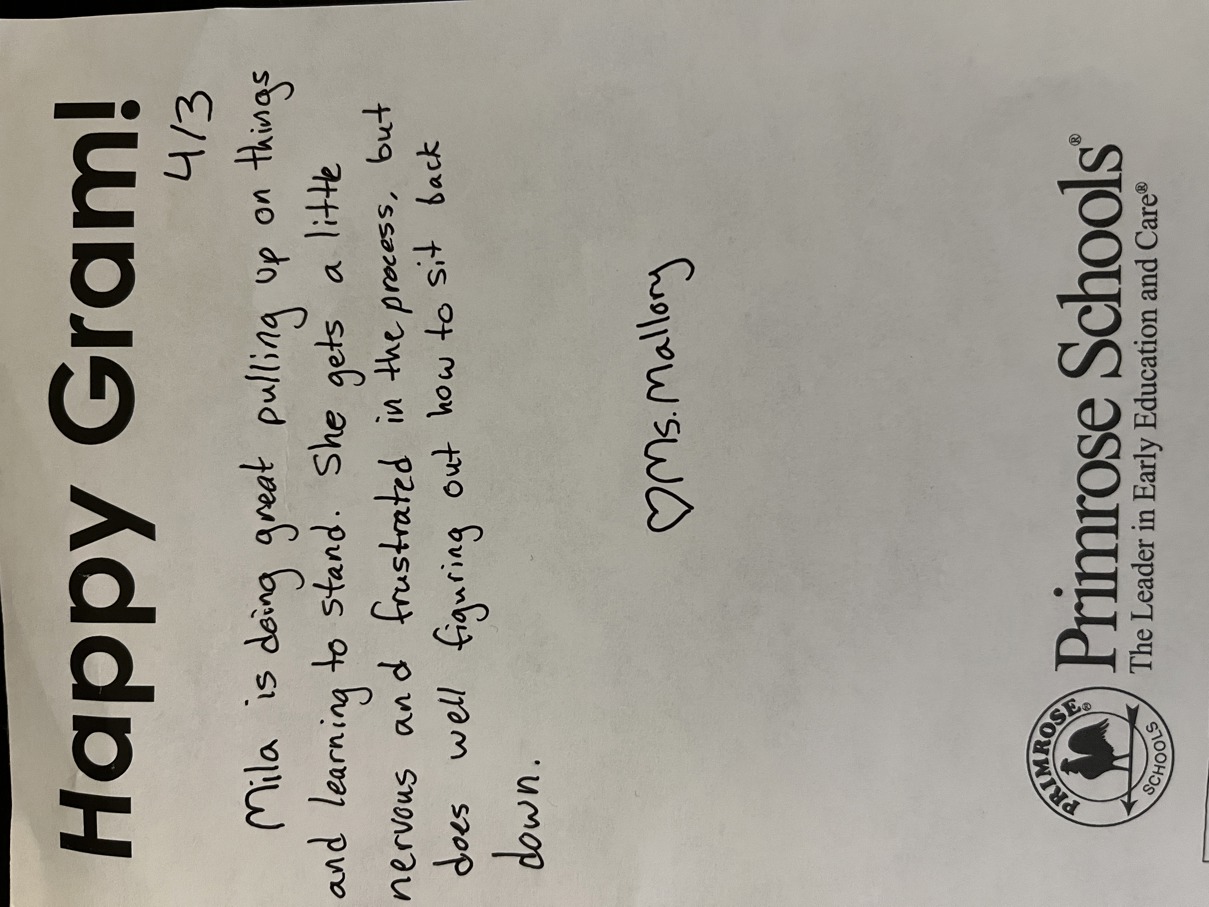 Happy Gram!
4/3
Mila is doing great pulling up on things
and learning to stand. She gets a little
nervous and frustrated in the process, but
does well figuring out how to sit back
down.
♡Ms. Mallory
PRIMROSE®
SCHOOLS
Primrose Schools®
The Leader in Early Education and Care®